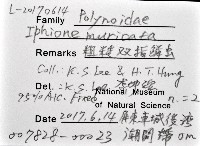 L-20170614
Family Polynoidae
Iphione muricata
Remarks 粗糙双指鱗虫
Coll.: K.S Lee & H.T. Hung
Det.: K.S. Lee
95% Alc. Fixed National Museum
of Natural Science n.=2
Date 2017.6.14 屏東車城後灣
007828-00023 潮間帶 0m